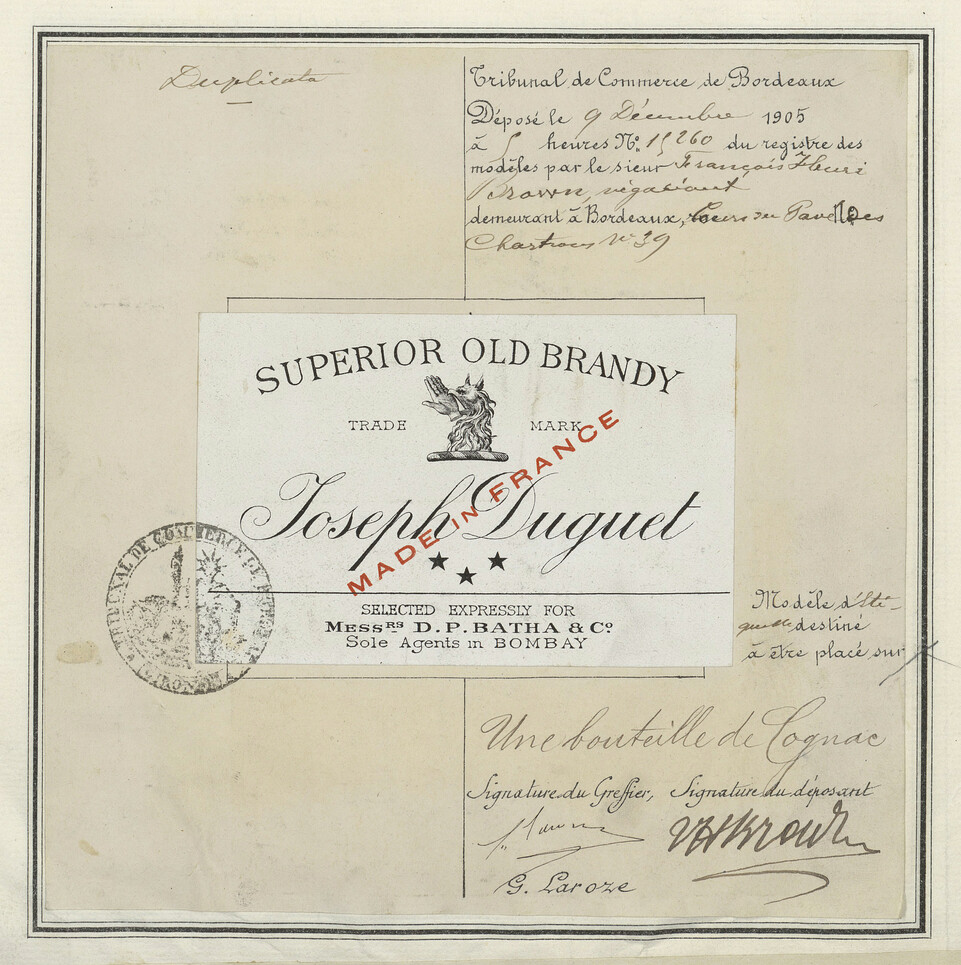 Duplicata
Tribunal de Commerce de Bordeaux
Déposé le 9 Décembre 1905
à 5 heures No. 15260 du registre des
modèles par le sieur François Henri
Brown, négociant
demeurant à Bordeaux, Cours du Pavé des
Chartrons No 39
SUPERIOR OLD BRANDY
TRADE MARK
MADE IN FRANCE
Joseph Duguet
SELECTED EXPRESSLY FOR
MESSRS D. P. BATHA & Co
Sole Agents in BOMBAY
TRIBUNAL DE COMMERCE DE
GIRONDE
Modèle d'éti-
quette destiné
à être placé sur
Une bouteille de Cognac
Signature du Greffier, Signature du déposant
G. Laroze